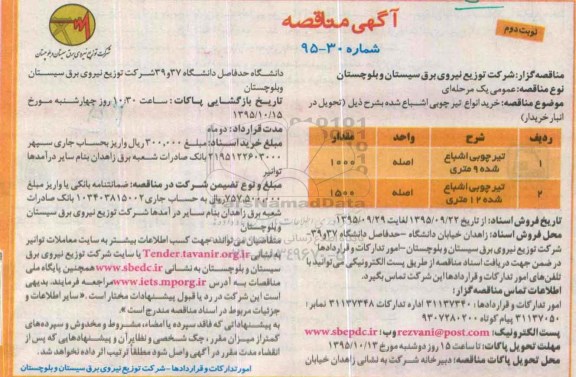 آگهی مناقصه
نوبت دوم
شماره ۳۰-۹۵
شرکت توزیع نیروی برق سیستان و بلوچستان
مناقصه گزار: شرکت توزیع نیروی برق سیستان و بلوچستان
نوع مناقصه: عمومی یک مرحله‌ای
موضوع مناقصه: خرید انواع تیر چوبی اشباع شده بشرح ذیل (تحویل در
انبار خریدار)
ردیف شرح واحد مقدار
۱ تیر چوبی اشباع شده ۹ متری اصله ۱۰۰۰
۲ تیر چوبی اشباع شده ۱۲ متری اصله ۱۵۰۰
تاریخ فروش اسناد: از تاریخ ۱۳۹۵/۰۹/۲۲ لغایت ۱۳۹۵/۰۹/۲۹
محل فروش اسناد: زاهدان خیابان دانشگاه - حدفاصل دانشگاه ۳۷ و ۳۹-
شرکت توزیع نیروی برق سیستان و بلوچستان - امور تدارکات و قراردادها
در ضمن جهت دریافت اسناد مناقصه از طریق پست الکترونیکی می توانید با
تلفن‌های امور تدارکات و قراردادها این شرکت تماس بگیرد.
اطلاعات تماس مناقصه گزار:
امور تدارکات و قراردادها: ۳۱۱۳۷۳۴۰ اداره تدارکات ۳۱۱۳۷۳۴۸ نمابر:
۳۱۱۳۷۰۵۰ پیام کوتاه ۹۳۰۷۲۸۰۲۰۰
پست الکترونیک: rezvani@post.com وب: www.sbepdc.ir
مهلت تحویل پاکات: تا ساعت ۱۵ روز دوشنبه مورخ ۱۳۹۵/۱۰/۱۳
محل تحویل پاکات مناقصه: دبیرخانه شرکت به نشانی زاهدان خیابان
دانشگاه حدفاصل دانشگاه ۳۷ و ۳۹ شرکت توزیع نیروی برق سیستان
وبلوچستان
تاریخ بازگشایی پاکات: ساعت ۱۰/۳۰ روز چهارشنبه مورخ
۱۳۹۵/۱۰/۱۵
مدت قرارداد: دو ماه
مبلغ خرید اسناد: مبلغ ۳۰۰,۰۰۰ ریال واریز بحساب جاری سپهر
۲۱۹۵۱۲۲۶۰۳۰۰۰ بانک صادرات شعبه برق زاهدان بنام سایر درآمدها
توانیر
مبلغ و نوع تضمین شرکت در مناقصه: ضمانتنامه بانکی یا واریز مبلغ
۷۵۲,۵۰۰,۰۰۰ ریال به حساب جاری ۱۰۳۴۰۳۸۱۵۰۰۲ بانک صادرات
شعبه برق زاهدان بنام سایر درآمدها شرکت توزیع نیروی برق سیستان
و بلوچستان
متقاضیان می توانند جهت کسب اطلاعات بیشتر به سایت معاملات توانیر
به نشانی Tender.tavanir.org.ir یا سایت شرکت توزیع نیروی برق
سیستان و بلوچستان به نشانی www.sbedc.ir همچنین پایگاه ملی
مناقصات به آدرس www.iets.mporg.ir مراجعه فرمایند. بدیهی
است این شرکت در رد یا قبول پیشنهادات مختار است. « سایر اطلاعات و
جزئیات مربوط در اسناد مناقصه مندرج است ».
به پیشنهاداتی که فاقد سپرده یا امضاء، مشروط و مخدوش و سپرده‌های
کمتر از میزان مقرر، چک شخصی و نظایر آن و پیشنهادهایی که پس از
انقضاء مدت مقرر در آگهی واصل شود مطلقاً ترتیب اثر داده نخواهد شد.
امور تدارکات و قراردادها - شرکت توزیع نیروی برق سیستان و بلوچستان